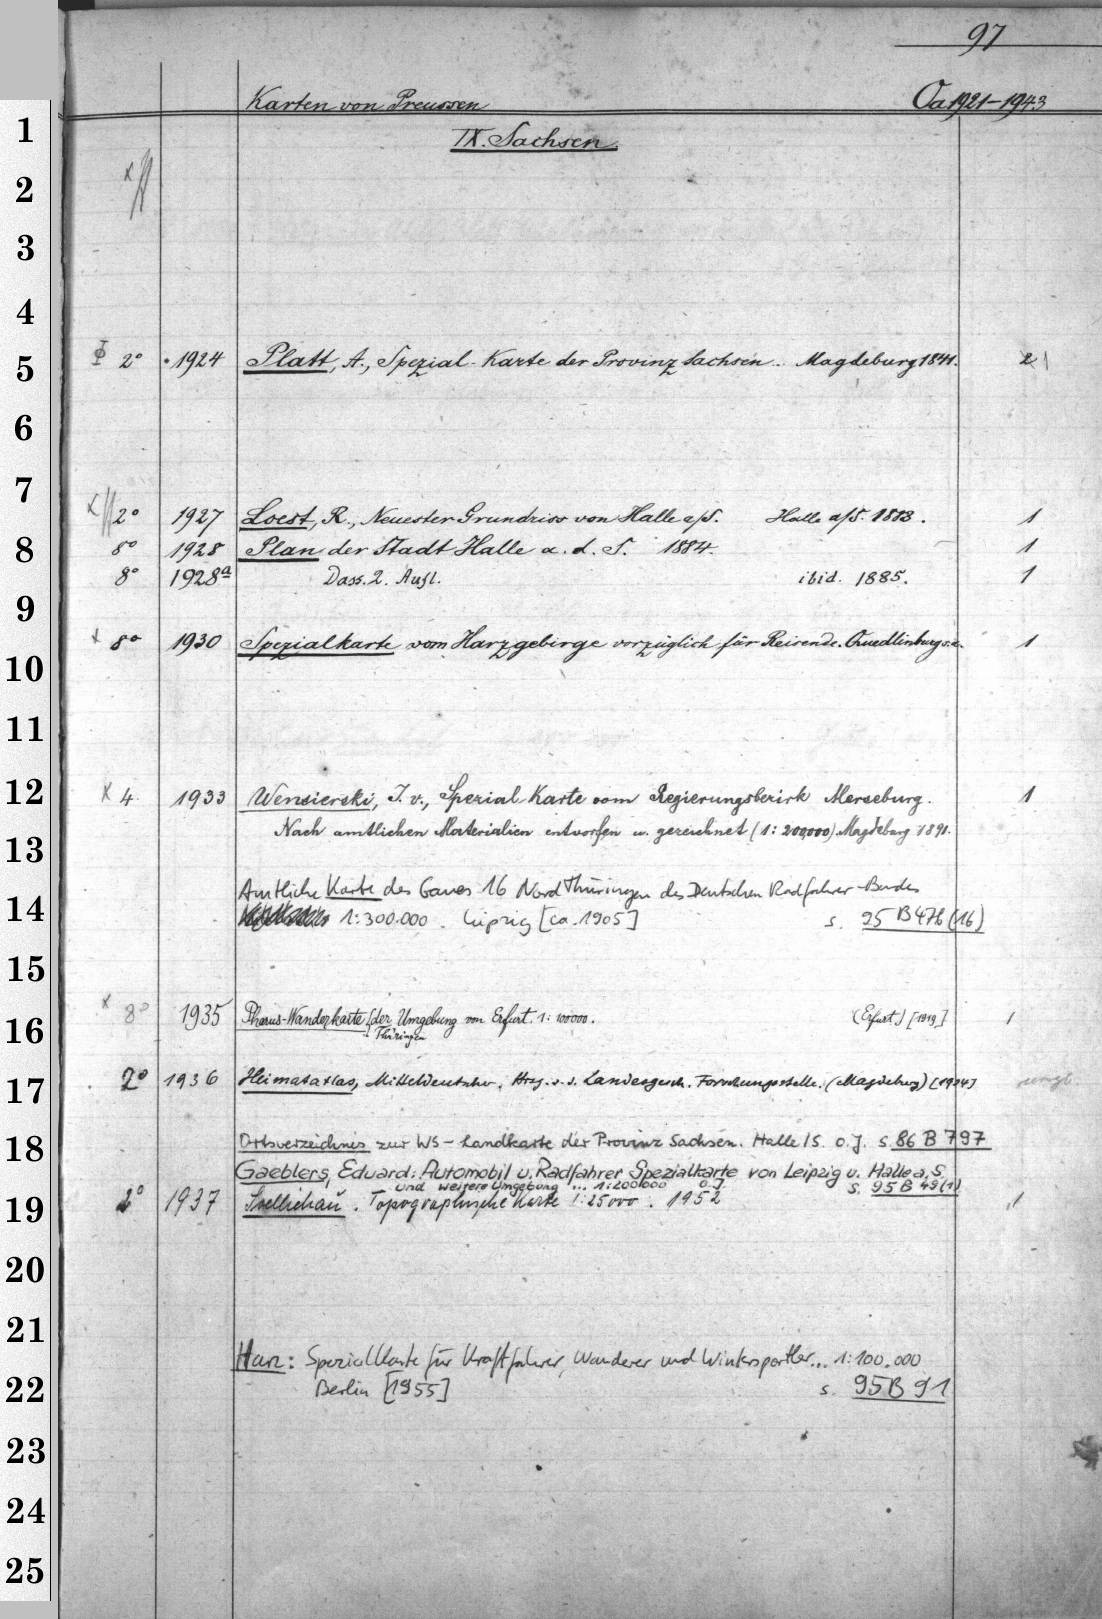 97
Karten von Preussen Oa 1921-1943
IX. Sachsen
1
2
3
4
5 2° 1924 Platt, A., Spezial-Karte der Provinz Sachsen.. Magdeburg 1841. 2 1
6
7
2° 1927 Loest, R., Neuester Grundriss von Halle a/S. Halle a/S. 1883. 1
8 8° 1928 Plan der Stadt Halle a. d. S. 1884 1
8° 1928a Dass. 2. Aufl. ibid. 1885. 1
9
x 8° 1930 Spezialkarte vom Harzgebirge vorzüglich für Reisende. Quedlinburg s.a. 1
10
11
12 x 4. 1933 Wensierski, J. v., Spezial-Karte vom Regierungsbezirk Merseburg. 1
Nach amtlichen Materialien entworfen u. gezeichnet (1:200,000) Magdeburg 1891.
13
Amtliche Karte des Gaues 16 Nord Thüringen des Deutschen Radfahrer-Bundes
14 1:300.000. Leipzig [ca. 1905] s. 95 B 476 (16)
15
x 8° 1935 Pharus-Wanderkarte der Umgebung von Erfurt. 1:100000. (Erfurt.) [1919] 1
16 Thüringen
17 2° 1936 Heimatatlas, Mitteldeutscher. Hrsg. v. d. Landesgesch. Forschungsstelle. (Magdeburg) [1934]
18 Ortsverzeichnis zur WS-Landkarte der Provinz Sachsen. Halle/S. o.J. s. 86 B 797
Gaeblers, Eduard: Automobil u. Radfahrer Spezialkarte von Leipzig u. Halle a. S.
und weitere Umgebung ... 1:200000 o.J. s. 95 B 49 (1)
19 2° 1937 Topographische Karte 1:25000. 1952 1
20
21
Harz: Spezialkarte für Kraftfahrer, Wanderer und Wintersportler... 1:100.000
22 Berlin [1955] s. 95 B 91
23
24
25